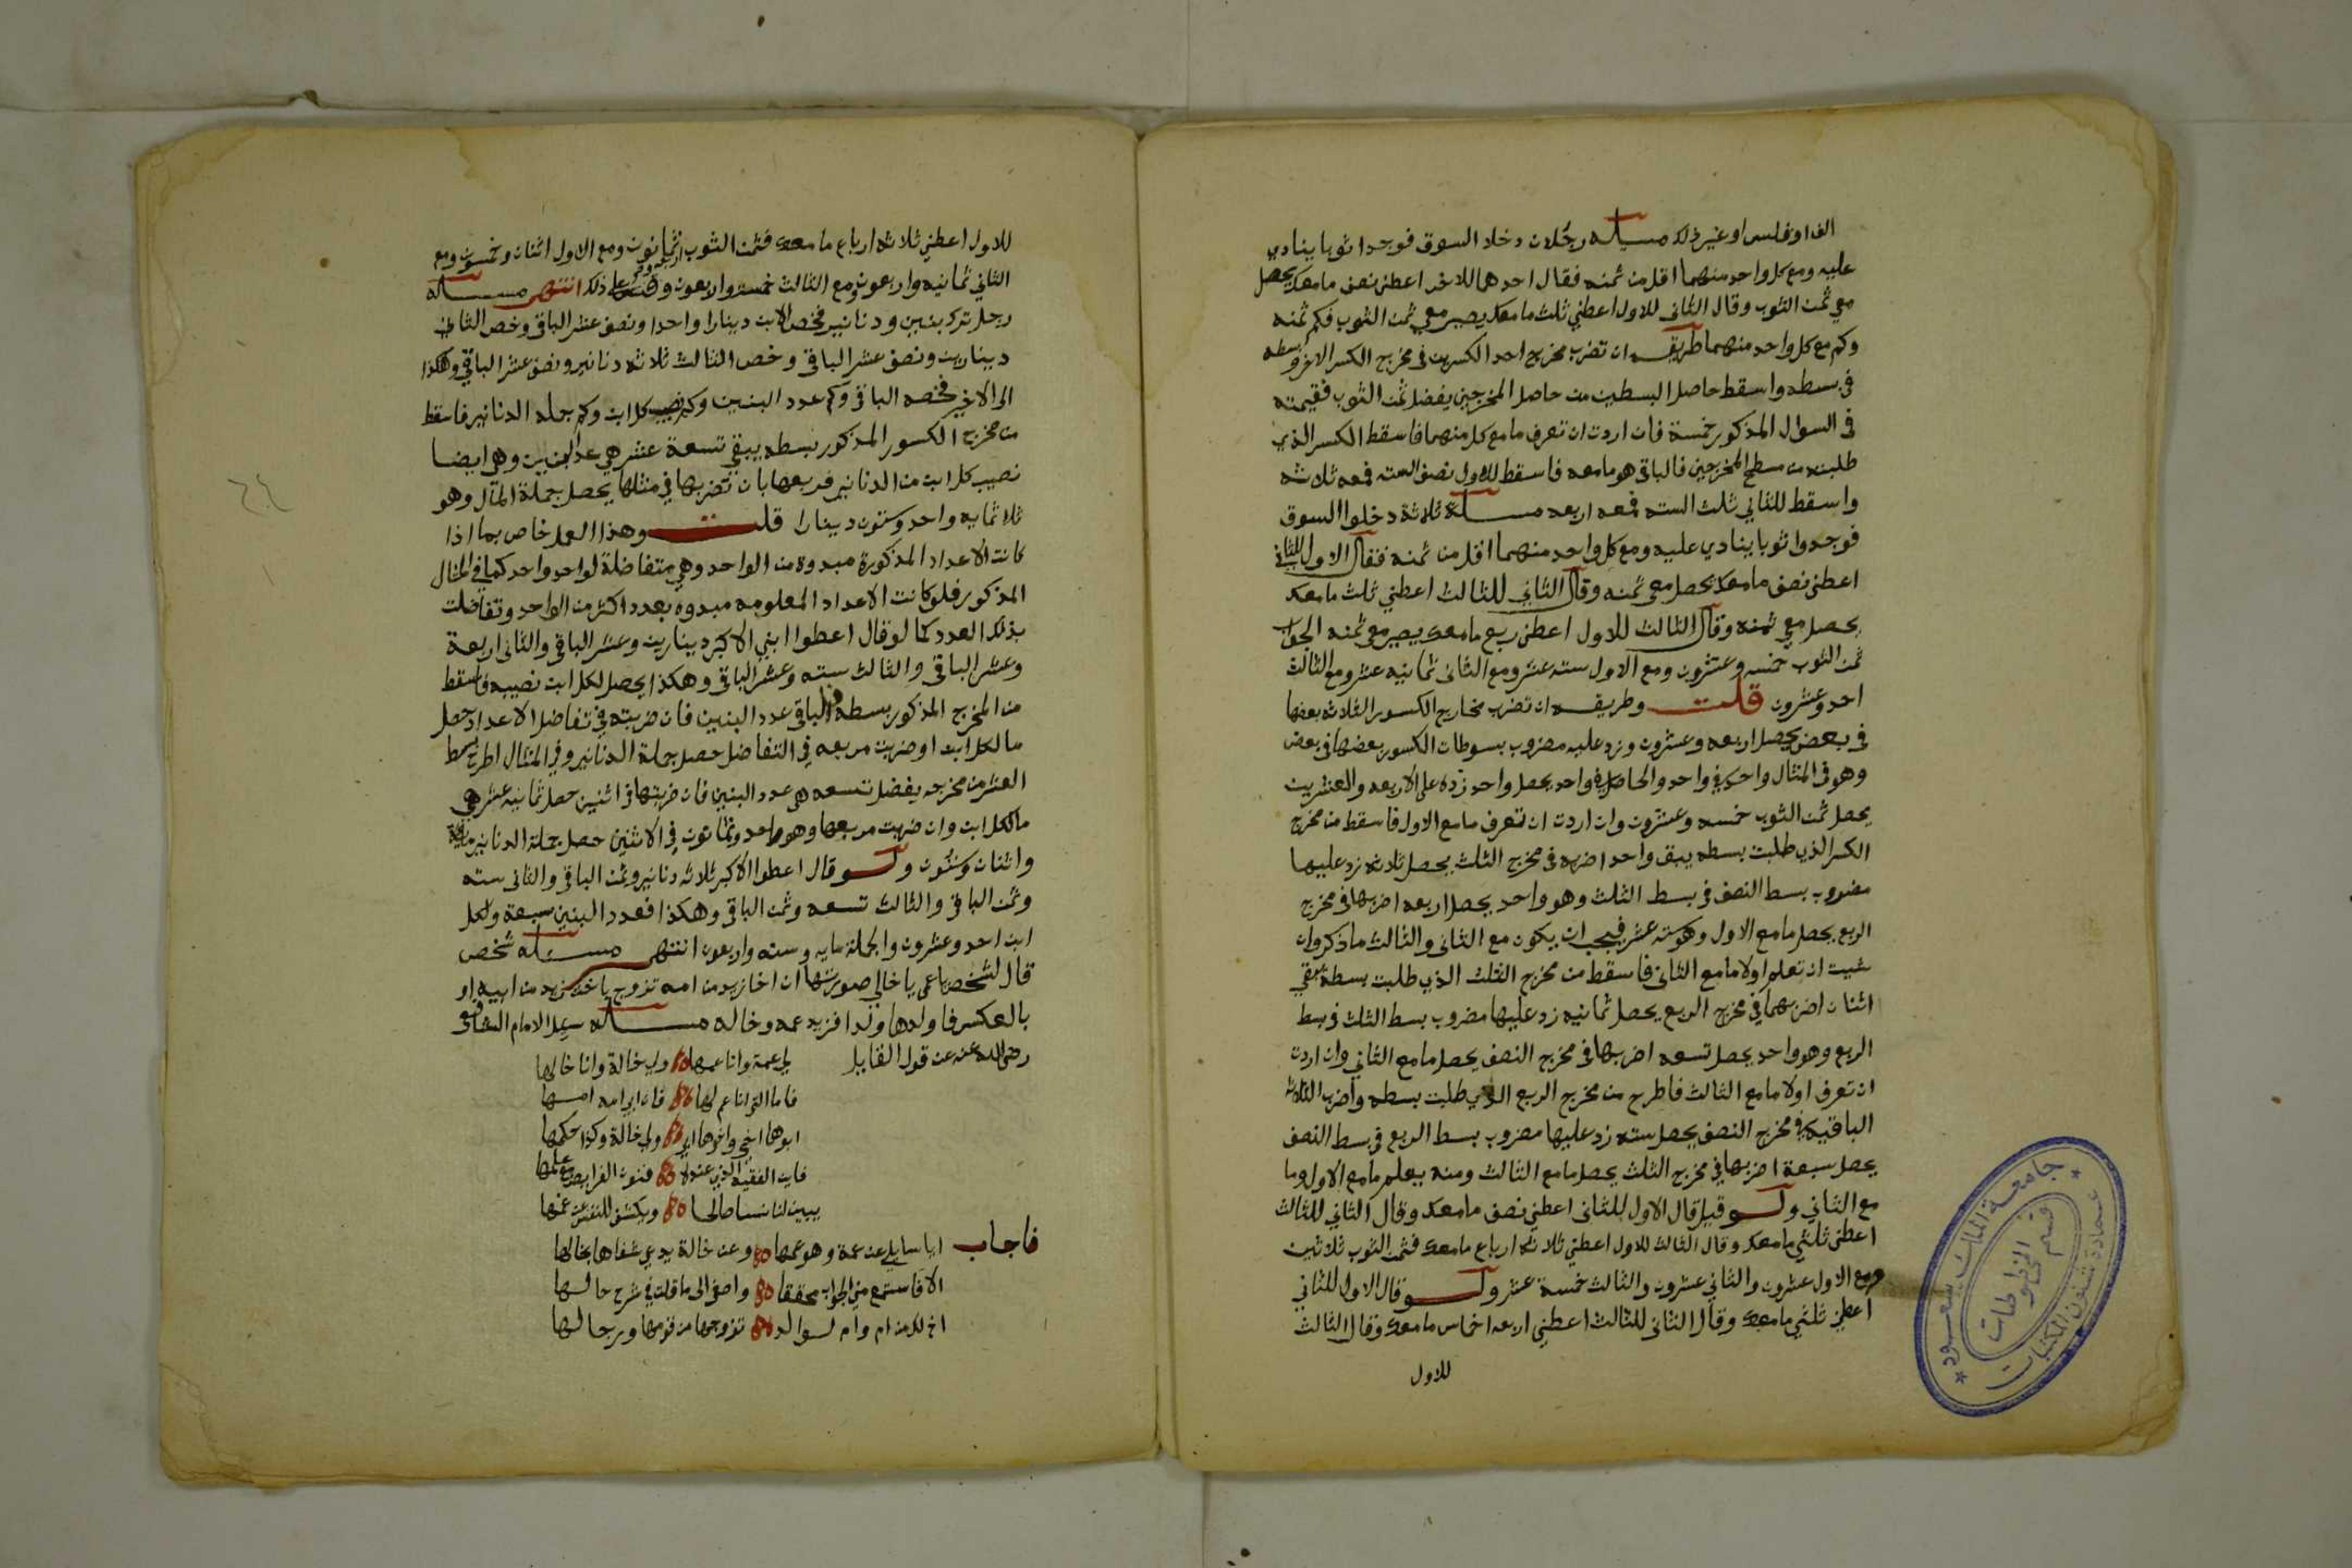 الف او فلس او غير ذلك مسئله رجلان دخلا السوق فوجدا ثوبا ينادي
عليه ومع كل واحد منهما اقل من ثمنه فقال احدهما للاخر اعطني نصف ما معك يحصل
معي ثمن الثوب وقال الثاني للاول اعطني ثلث ما معك يصير معي ثمن الثوب فكم ثمنه
وكم مع كل واحد منهما طريقه ان تضرب مخرج احد الكسرين في مخرج الكسر الاخر وبسطه
في بسطه واسقط حاصل البسطين من حاصل المخرجين يفضل ثمن الثوب فقيمته
في السوال المذكور خمسة فان اردت ان تعرف ما مع كل منهما فاسقط الكسر الذي
طلبته من مسطح المخرجين فالباقي هو ما معه فاسقط للاول نصف الستة فمعه ثلاثه
واسقط للثاني ثلث الستة فمعه اربعه مسئلة ثلاثة دخلوا السوق
فوجدوا ثوبا ينادي عليه ومع كل واحد منهما اقل من ثمنه فقال الاول للثاني
اعطني نصف ما معك يحصل معي ثمنه وقال الثاني للثالث اعطني ثلث ما معك
يحصل معي ثمنه وقال الثالث للاول اعطني ربع ما معك يصير معي ثمنه الجواب
ثمن الثوب خمسه وعشرون ومع الاول سته عشر ومع الثاني ثمانيه عشر ومع الثالث
احد وعشرون قلت وطريقه ان تضرب مخارج الكسور الثلاثه بعضها
في بعض يحصل اربعه وعشرون وزد عليه مضروب بسوطات الكسور بعضها في بعض
وهو في المثال واحد في واحد والحاصل في واحد يحصل واحد زده على الاربعه والعشرين
يحصل ثمن الثوب خمسه وعشرون وان اردت ان تعرف ما مع الاول فاسقط من مخرج
الكسر الذي طلبت بسطه يبقى واحد اضربه في مخرج الثلث يحصل ثلاثه زد عليها
مضروب بسط النصف في بسط الثلث وهو واحد يحصل اربعه اضربها في مخرج
الربع يحصل ما مع الاول وهو سته عشر فيجب ان يكون مع الثاني والثالث ما ذكر وان
شيت ان تعلم اولا ما مع الثاني فاسقط من مخرج الثلث الذي طلبت بسطه يبقي
اثنان اضربهما في مخرج الربع يحصل ثمانيه زد عليها مضروب بسط الثلث في بسط
الربع وهو واحد يحصل تسعه اضربها في مخرج النصف يحصل ما مع الثاني وان اردت
ان تعرف اولا ما مع الثالث فاطرح من مخرج الربع الذي طلبت بسطه واضرب الثلاث
الباقيه في مخرج النصف يحصل سته زد عليها مضروب بسط الربع في بسط النصف
يحصل سبعة اضربها في مخرج الثلث يحصل ما مع الثالث ومنه يعلم ما مع الاول وما
مع الثاني ولو قيل قال الاول للثاني اعطني نصف ما معك وقال الثاني للثالث
اعطني ثلثي ما معك وقال الثالث للاول اعطني ثلاثة ارباع ما معك فثمن الثوب ثلاثين
ومع الاول عشرون والثاني عشرون والثالث خمسة عشر ولو قال الاول للثاني
اعطني ثلثي ما معك وقال الثاني للثالث اعطني اربعه اخماس ما معك وقال الثالث
للاول
للاول اعطني ثلاثه ارباع ما معك فثمن الثوب اربعه وثمانون ومع الاول اثنان وخمسون ومع
الثاني ثمانيه واربعون ومع الثالث خمسة واربعون وقس على ذلك انتهى مسئله
رجل ترك بنين ودنانير فخص الابن دينارا واحدا ونصف عشر الباقي وخص الثاني
دينارين ونصف عشر الباقي وخص الثالث ثلاثه دنانير ونصف عشر الباقي وهكذا
الى الاخير فخصه الباقي وكم عدد البنين وكم نصيب كل ابن وكم جمله الدنانير فاسقط
من مخرج الكسور المذكور بسطه يبقي تسعة عشر هي عدد البنين وهي ايضا
نصيب كل ابن من الدنانير فربعها بان تضربها في مثلها يحصل جملة المال وهو
ثلاثمايه واحد وستون دينارا قلت وهذا العمل خاص بما اذا
كانت الاعداد المذكورة مبدوة من الواحد وهي متفاضلة لواحد واحد كما في المثال
المذكور فلو كانت الاعداد المعلومه مبدوه بعدد اكثر من الواحد وتفاضلت
بذلك العدد كما لو قال اعطوا ابني الاكبر دينارين وعشر الباقي والثاني اربعة
وعشر الباقي والثالث سته وعشر الباقي وهكذا يحصل لكل ابن نصيبه فاسقط
من المخرج المذكور بسطه فالباقي عدد البنين فان ضربته في تفاضل الاعداد حصل
ما لكل ابن او ضربت مربعه في التفاضل حصل جملة الدنانير وفي المثال اطرح بسط
العشر من مخرجه يفضل تسعه هي عدد البنين فان ضربتها في اثنين حصل ثمانيه عشر هي
ما لكل ابن وان ضربت مربعها وهو واحد وثمانون في الاثنين حصل جملة الدنانير مايه
واثنان وستون ولو قال اعطوا الاكبر ثلاثه دنانير وثمن الباقي والثاني سته
وثمن الباقي والثالث تسعه وثمن الباقي وهكذا فعدد البنين سبعة ولكل
ابن احد وعشرون والجملة مايه وسته واربعون انتهى مسئله شخص
قال لشخص يا عمي يا خالي صورتها ان اخا زيد من امه تزوج باخت زيد من ابيه او
بالعكس فاولدها ولدا فزيد عمه وخاله مسئله سيل الامام الشافعي
رضي الله عنه عن قول القايل لي عمة وانا عمها ولي خالة وانا خالها
فاما التي انا عم لها فان ابي امه امها
ابوها اخي واخوها ابي ولي خالة وكذا حكمها
فاين الفقيه الذي عنده فنون الفرايض مع علمها
يبين لنا نسبا صالحا ويكشف للنفس عن غمها
فاجاب ايا سايلي عن عمة وهو عمها وعن خالة يدعي شفاها بخالها
الا فاستمع مني الجواب محققا واصغ الى ما قلت في شرح حالها
اخ لك من ام وام لوالد تزوجها من قومها ورجالها
جامعة الملك سعود
عمادة شئون المكتبات
قسم المخطوطات